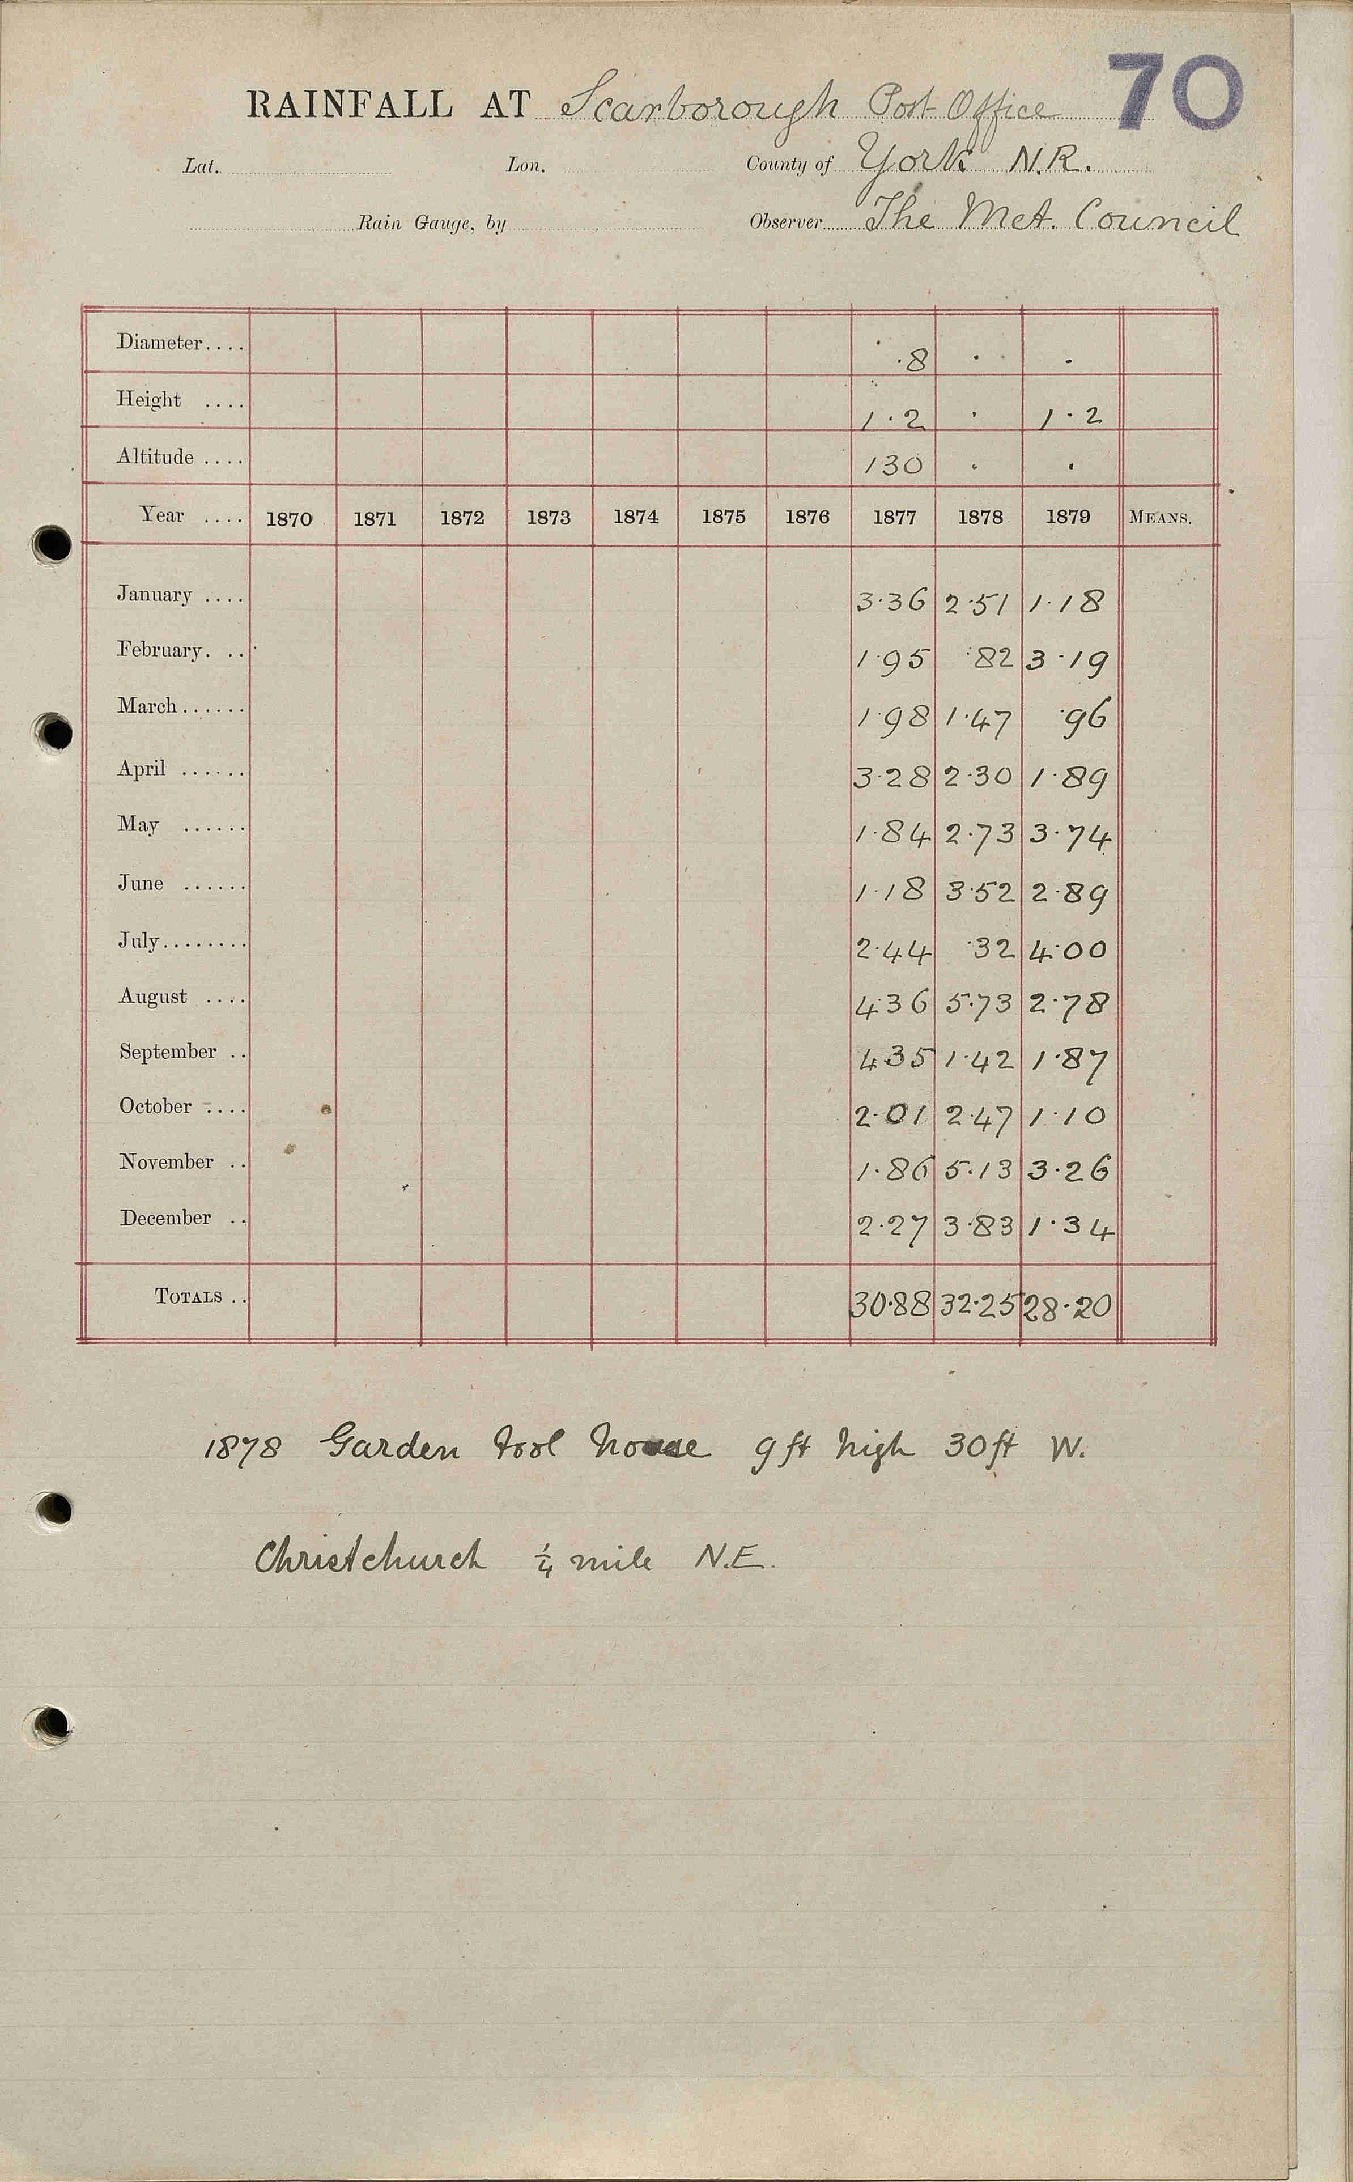 70
RAINFALL AT Scarborough Post Office
Lat. Lon. County of York N.R.
Rain Gauge, by Observer The Met. Council
Diameter.... ·8 · ·
Height .... 1·2 · 1·2
Altitude .... 130 · ·
Year .... 1870 1871 1872 1873 1874 1875 1876 1877 1878 1879 MEANS.
January .... 3·36 2·51 1·18
February. .. 1·95 ·82 3·19
March...... 1·98 1·47 ·96
April ...... 3·28 2·30 1·89
May ...... 1·84 2·73 3·74
June ...... 1·18 3·52 2·89
July........ 2·44 ·32 4·00
August .... 4·36 5·73 2·78
September .. 4·35 1·42 1·87
October .... 2·01 2·47 1·10
November .. 1·86 5·13 3·26
December .. 2·27 3·83 1·34
TOTALS .. 30·88 32·25 28·20
1878 Garden tool house 9 ft high 30 ft W.
Christchurch ¼ mile N.E.